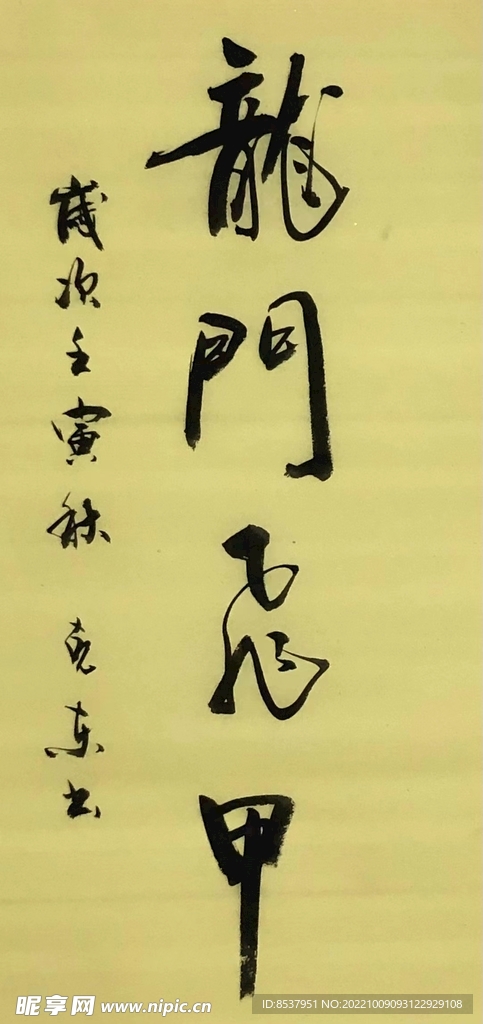 龍門飛甲
歲次壬寅秋 克東书
昵享网 www.nipic.cn
ID:8537951 NO:20221009093122929108